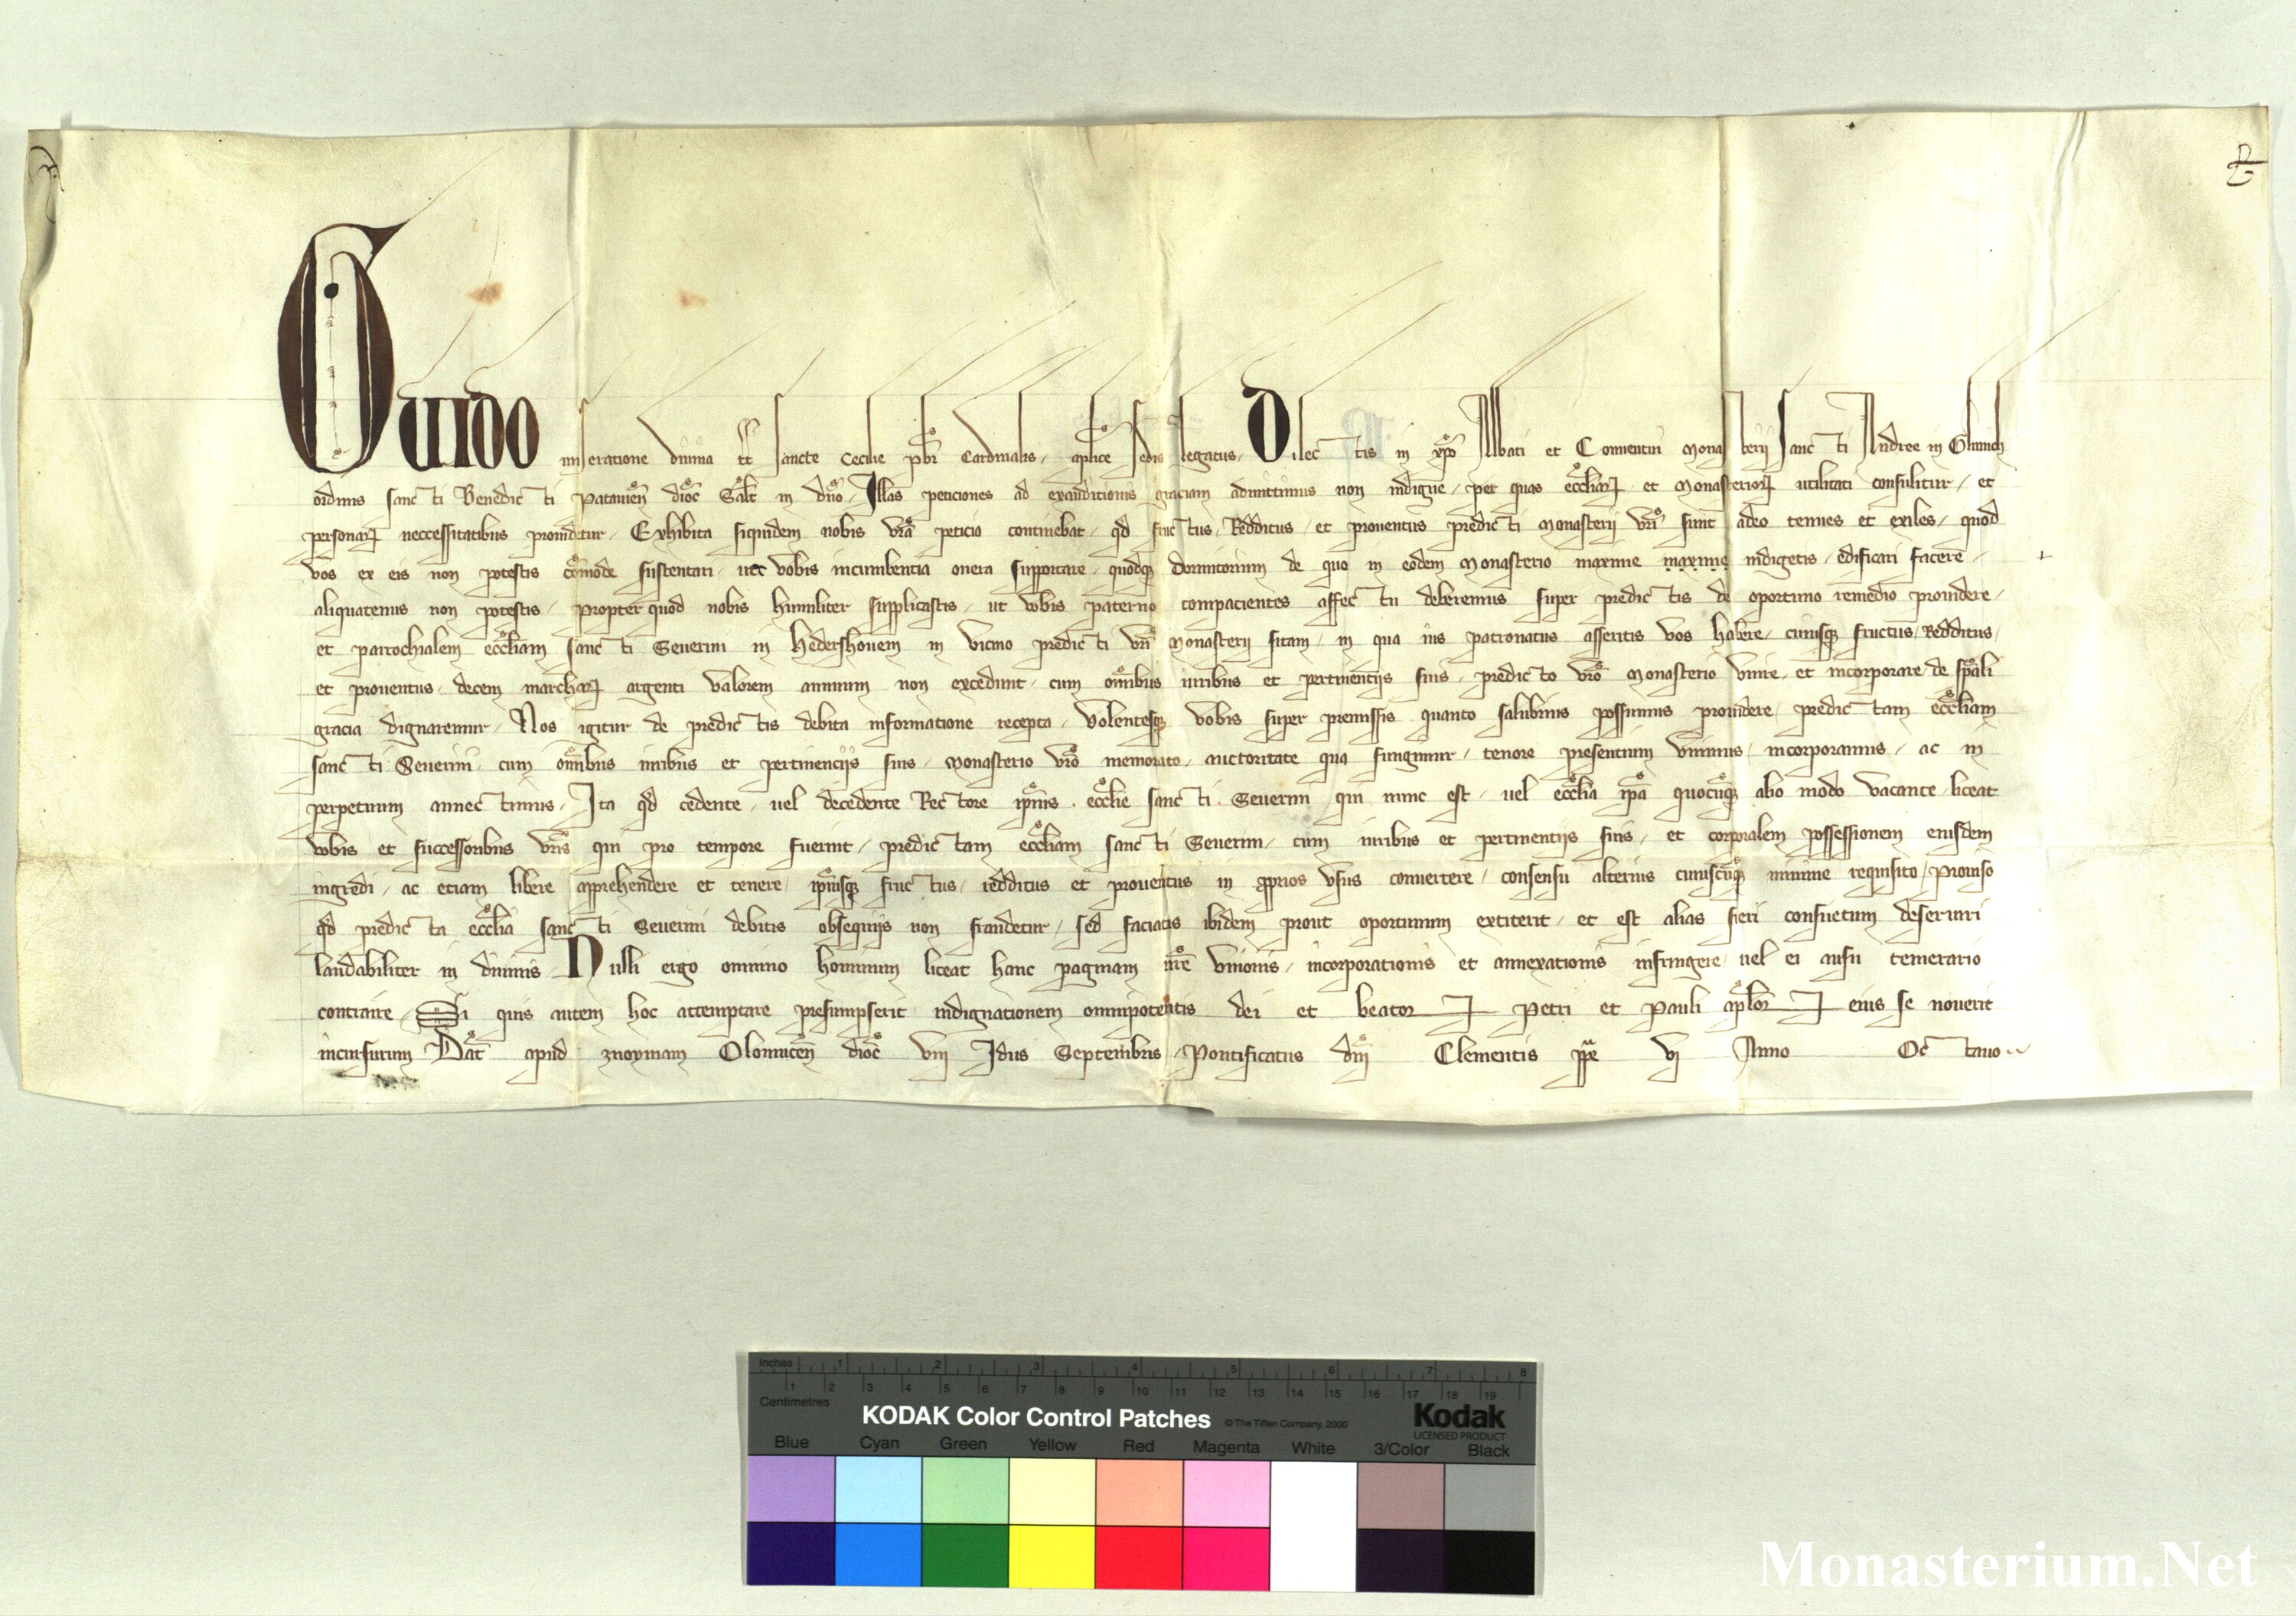 Guido miseratione diuina tt sancte Cecilie pbr Cardinalis, aplice Sedis legatus, Dilectis in xpo Abbati et Conuentui Monasterij Sancti Andree in Ghunich
ordinis sancti Benedicti Patauien dioc Salt in dno, Illas peticiones ad exauditionis graciam admittimus non indigne, per quas eccliarꝝ et Monasteriorꝝ utilitati consulitur, et
personarꝝ neccessitatibus prouidetur, Exhibita siquidem nobis vra peticio continebat, qd fructus, Redditus, et prouentus predicti Monasterij vri sunt adeo tenues et exiles, quod
vos ex eis non potestis comode sustentari, nec vobis incumbentia onera supportare, quodqꝫ dormitorium de quo in eodem Monasterio maxime maxime indigetis, edificari facere,
aliquatenus non potestis, Propter quod nobis humiliter supplicastis, ut vobis paterno compacientes affectu deberemus super predictis de oportuno remedio prouidere,
et parrochialem eccliam sancti Seuerini in Hedershouem in vicino predicti vri Monasterij sitam, in qua ius patronatus asseritis vos habere, cuiusqꝫ fructus, Redditus,
et prouentus, decem marcharꝝ argenti valorem annuum non excedunt, cum omibus iuribus et pertinentijs suis, predicto vro Monasterio vnire, et incorporare, de spali
gracia dignaremur, Nos igitur de predictis debita informatione recepta, volentesqꝫ vobis super premissis quanto salubrius possumus prouidere, predictam eccliam
sancti Seuerini, cum omibus iuribus et pertinencijs suis, Monasterio vro memorato, auctoritate qua fungimur, tenore presentium vnimus, incorporamus, ac in
perpetuum annectimus, Ita qd cedente, uel decedente Rectore ipius ecclie sancti Seuerini qui nunc est, uel ecclia ipa quocuqꝫ alio modo vacante, liceat
vobis et successoribus vris qui pro tempore fuerint, predictam eccliam sancti Seuerini, cum iuribus et pertinentijs suis, et corporalem possessionem eiusdem
ingredi, ac etiam libere apprehendere et tenere, ipiusqꝫ fructus, redditus et prouentus in pprios vsus conuertere, consensu alterius cuiuscuqꝫ minime requisito, Prouiso
qd predicta ecclia sancti Seuerini debitis obsequijs non fraudetur, sed faciatis ibidem prout oportunum extiterit, et est alias fieri consuetum deseruiri
laudabiliter in diuinis Nulli ergo omnino hominum liceat hanc paginam nre vnionis, incorporationis et annexationis infringere, uel ei ausu temerario
contraire, Si quis autem hoc attemptare presumpserit indignationem omnipotentis dei et beatorꝝ Petri et Pauli aplorꝝ eius se nouerit
incursurum Dat apud znoymam Olomucen dioc viij Idus Septembris, Pontificatus dni Clementis ppe vj Anno Octauo
Inches 1 2 3 4 5 6 7 8
Centimetres 1 2 3 4 5 6 7 8 9 10 11 12 13 14 15 16 17 18 19
KODAK Color Control Patches © The Tiffen Company, 2000 Kodak
LICENSED PRODUCT
Blue Cyan Green Yellow Red Magenta White 3/Color Black
Monasterium.Net